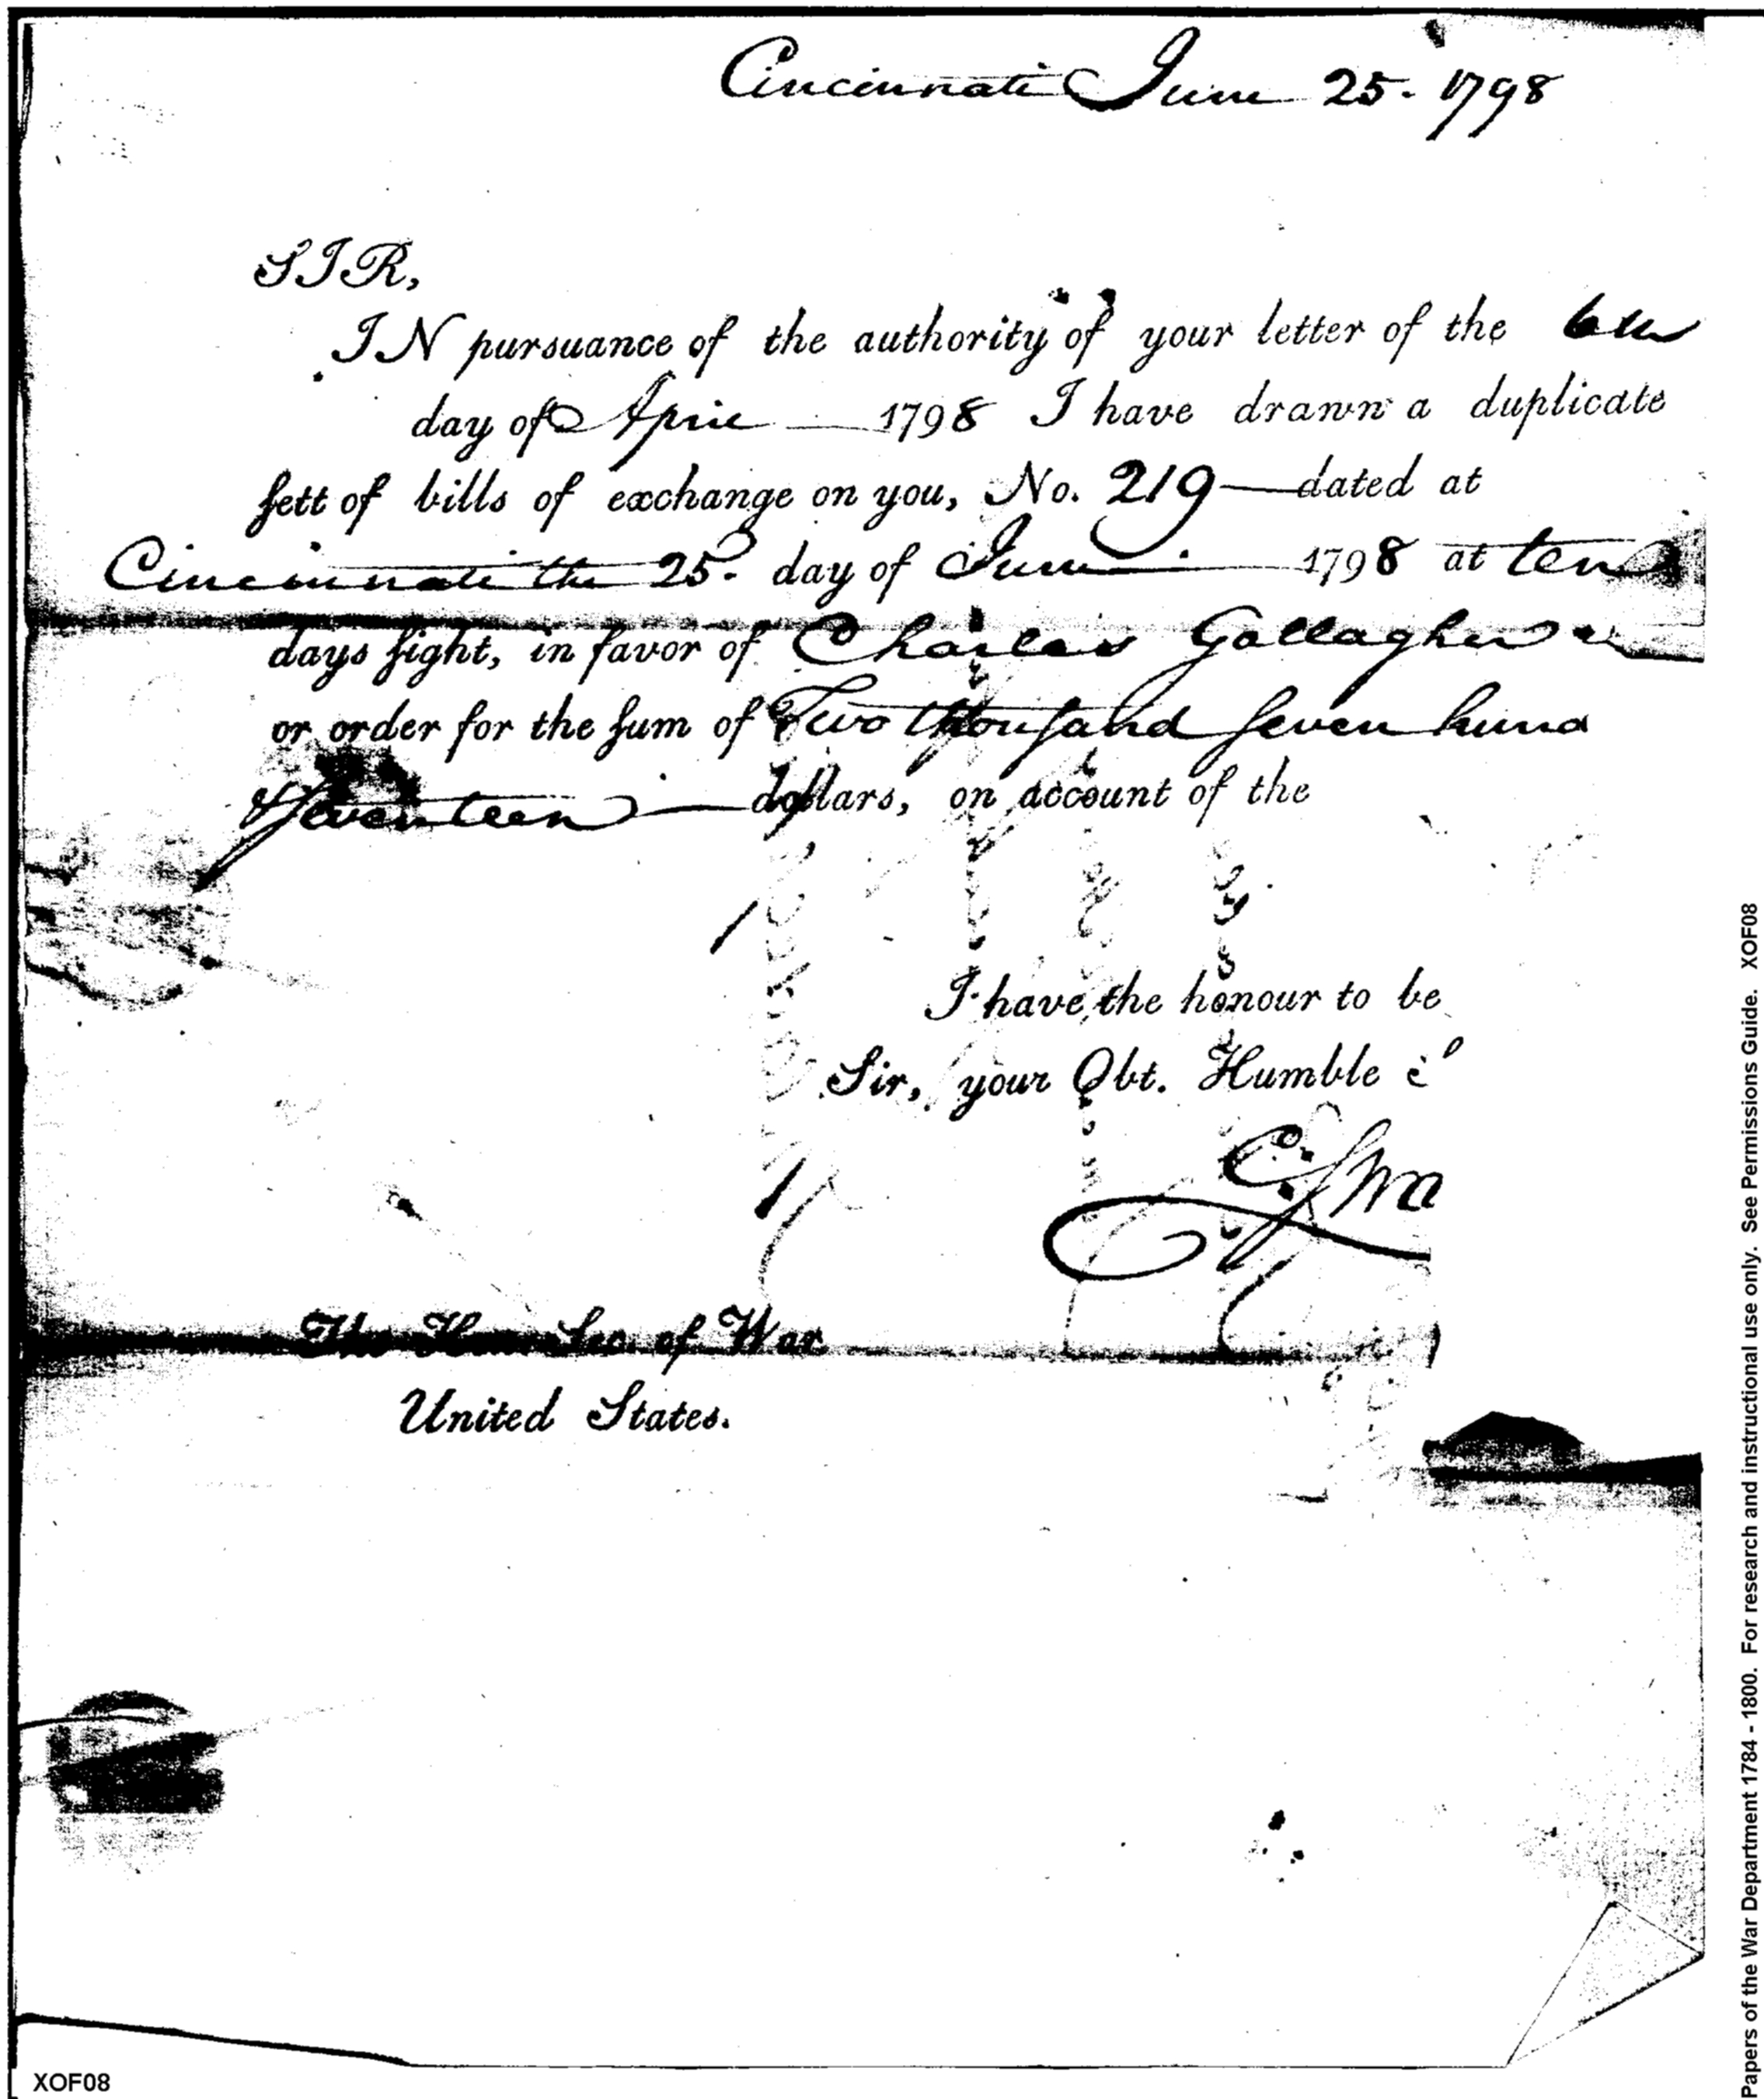 Cincinnati June 25. 1798
SIR,
IN pursuance of the authority of your letter of the 6th
day of April 1798 I have drawn a duplicate
sett of bills of exchange on you, No. 219 dated at
Cincinnati the 25. day of June 1798 at ten
days sight, in favor of Charles Gallagher
or order for the sum of Two thousand seven hund
& Seventeen dollars, on account of the
I have the honour to be
Sir, your Obt. Humble
The Hon. Sec. of War
United States.
XOF08
Papers of the War Department 1784 - 1800. For research and instructional use only. See Permissions Guide. XOF08